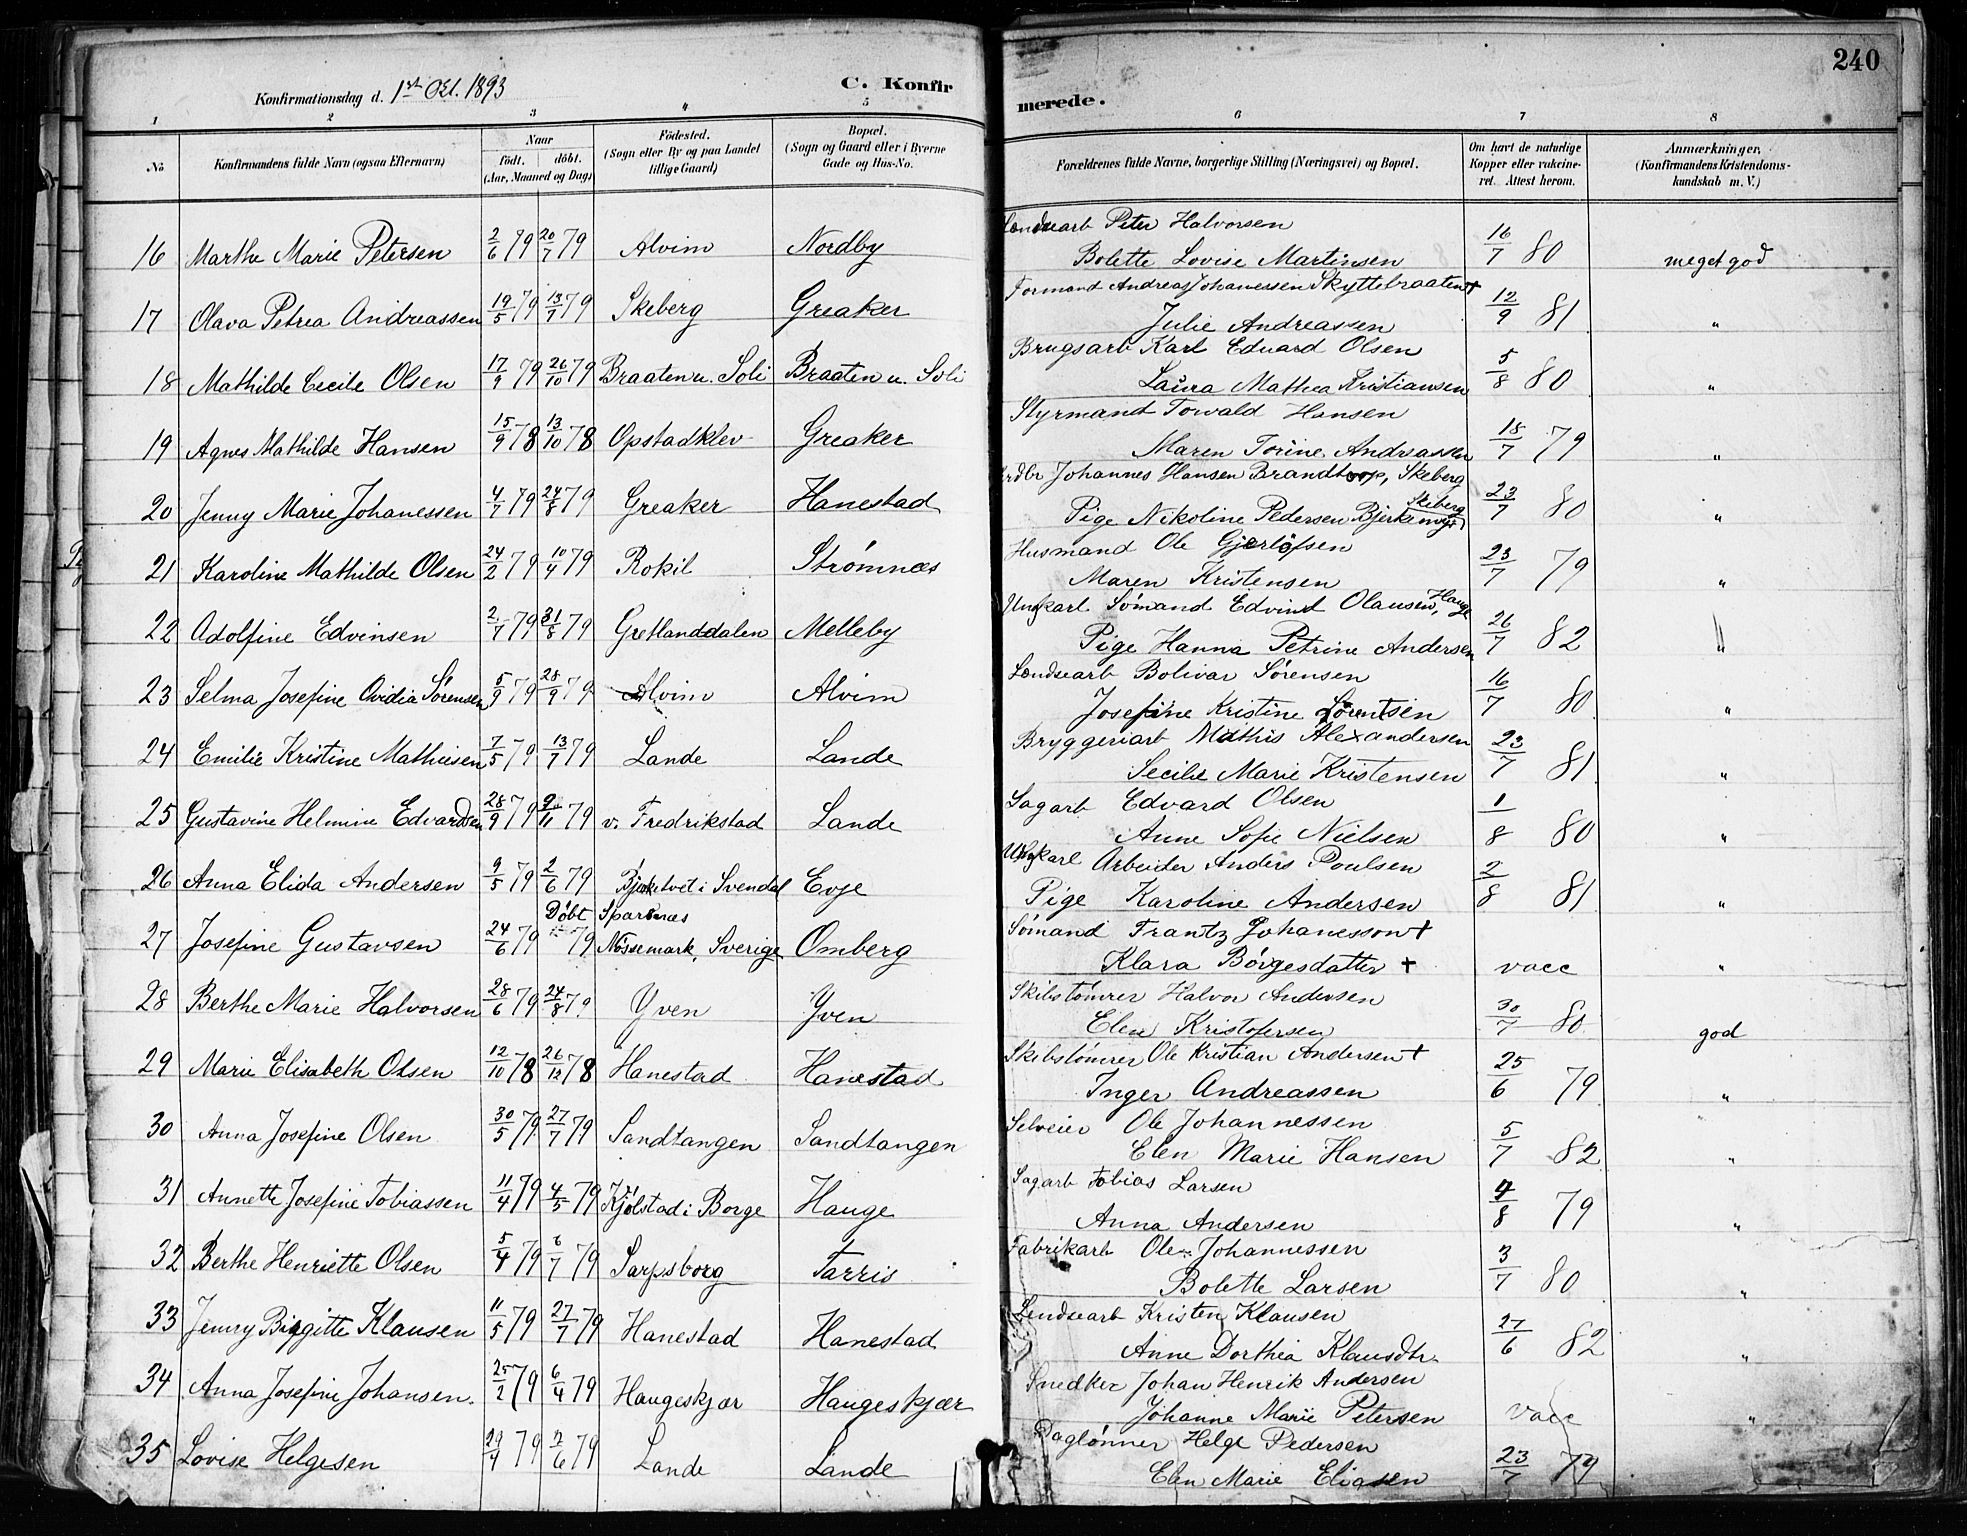 240
Konfirmationsdag d. 1ste Okt. 1893
C. Konfirmerede.
1 2 3 4 5 6 7 8
No
Konfirmandens fulde Navn (ogsaa Efternavn)
Naar født. døbt. (Aar, Maaned og Dag)
Fødested. (Sogn eller By og paa Landet tillige Gaard)
Bopæl. (Sogn og Gaard eller i Byerne Gade og Hus-No.
Forældrenes fulde Navne, borgerlige Stilling (Næringsvei) og Bopæl.
Om havt de naturlige Kopper eller vakcineret. Attest herom.
Anmærkninger, (Konfirmandens Kristendomskundskab m. V.)
16 Marthe Marie Petersen 2/6 79 20/7 79 Alvim Nordby Lændsearb Peter Halvorsen
Bolette Lovise Martinsen 16/7 80 meget god
17 Olava Petrea Andreassen 19/5 79 13/7 79 Skeberg Greaker Formand Andreas Johanessen Skyttebraaten +
Julie Andreassen 12/9 81 "
18 Mathilde Cecile Olsen 17/9 79 26/10 79 Braaten u. Soli Braaten u. Soli Brugsarb Karl Eduard Olsen
Laura Mathea Kristiansen 5/8 80 "
19 Agnes Mathilde Hansen 15/9 78 13/10 78 Opstadklev Greaker Styrmand Torvald Hansen
Maren Torine Andreassen 18/7 79 "
20 Jenny Marie Johanessen 4/7 79 24/8 79 Greaker Hanestad Johannes Hansen Brandtorp, Skeberg
Pige Nikoline Pedersen Bjerkemyr Skeberg 23/7 80 "
21 Karoline Mathilde Olsen 24/2 79 10/4 79 Rokil Strømnæs Husmand Ole Gjerløfsen
Maren Kristensen 23/7 79 "
22 Adolfine Edvinsen 2/7 79 31/8 79 Gretlanddalen Melleby Ungkarl Sømand Edvind Olausen, Hauge
Pige Hanna Petrine Andersen 26/7 82 "
23 Selma Josefine Ovidia Sørensen 5/9 79 28/9 79 Alvim Alvim Lændsearb Bolivar Sørensen
Josefine Kristine Sørentsen 16/7 80 "
24 Emilie Kristine Mathiesen 7/5 79 13/7 79 Lande Lande Bryggeriarb Mathis Alexandersen
Secilie Marie Kristensen 23/7 81 "
25 Gustavine Helmine Edvardsen 28/9 79 9/11 79 v. Fredrikstad Lande Sagarb Edvard Olsen
Anne Sofie Nielsen 1/8 80 "
26 Anna Elida Andersen 9/5 79 2/6 79 Bjerketvet i Svendal Evje Ungkarl Arbeider Anders Poulsen
Pige Karoline Andersen 2/8 81 "
27 Josefine Gustavsen 24/6 79 Døbt 79 Sparsnæs Nøssemark, Sverige Omberg Sømand Frantz Johanesson +
Klara Børgesdatter + vacc "
28 Berthe Marie Halvorsen 28/6 79 24/8 79 Yven Yven Skibstømrer Halvor Andersen
Elen Kristofersen 30/7 80 god
29 Marie Elisabeth Olsen 12/10 78 26/12 78 Hanestad Hanestad Skibstømrer Ole Kristian Andersen +
Inger Andreassen 25/6 79 "
30 Anna Josefine Olsen 30/5 79 27/7 79 Sandtangen Sandtangen Selveier Ole Johannessen
Elen Marie Hansen 5/7 82 "
31 Annette Josefine Tobiassen 11/4 79 4/5 79 Kjølstad i Borge Hauge Sagarb Tobias Larsen
Anna Andersen 4/8 79 "
32 Berthe Henriette Olsen 5/4 79 6/7 79 Sarpsborg Tarris Fabrikarb Ole Johannessen
Bolette Larsen 3/7 80 "
33 Jenny Birgitte Klausen 11/5 79 27/7 79 Hanestad Hanestad Lendsearb Kristen Klausen
Anne Dorthea Klausdtr 27/6 82 "
34 Anna Josefine Johansen. 25/2 79 6/4 79 Haugeskjær Haugeskjær Snedker Johan Henrik Andersen
Johanne Marie Petersen vacc "
35 Lovise Helgesen 29/4 79 2/6 79 Lande Lande Daglønner Helge Pedersen
Elen Marie Eliasen 23/7 79